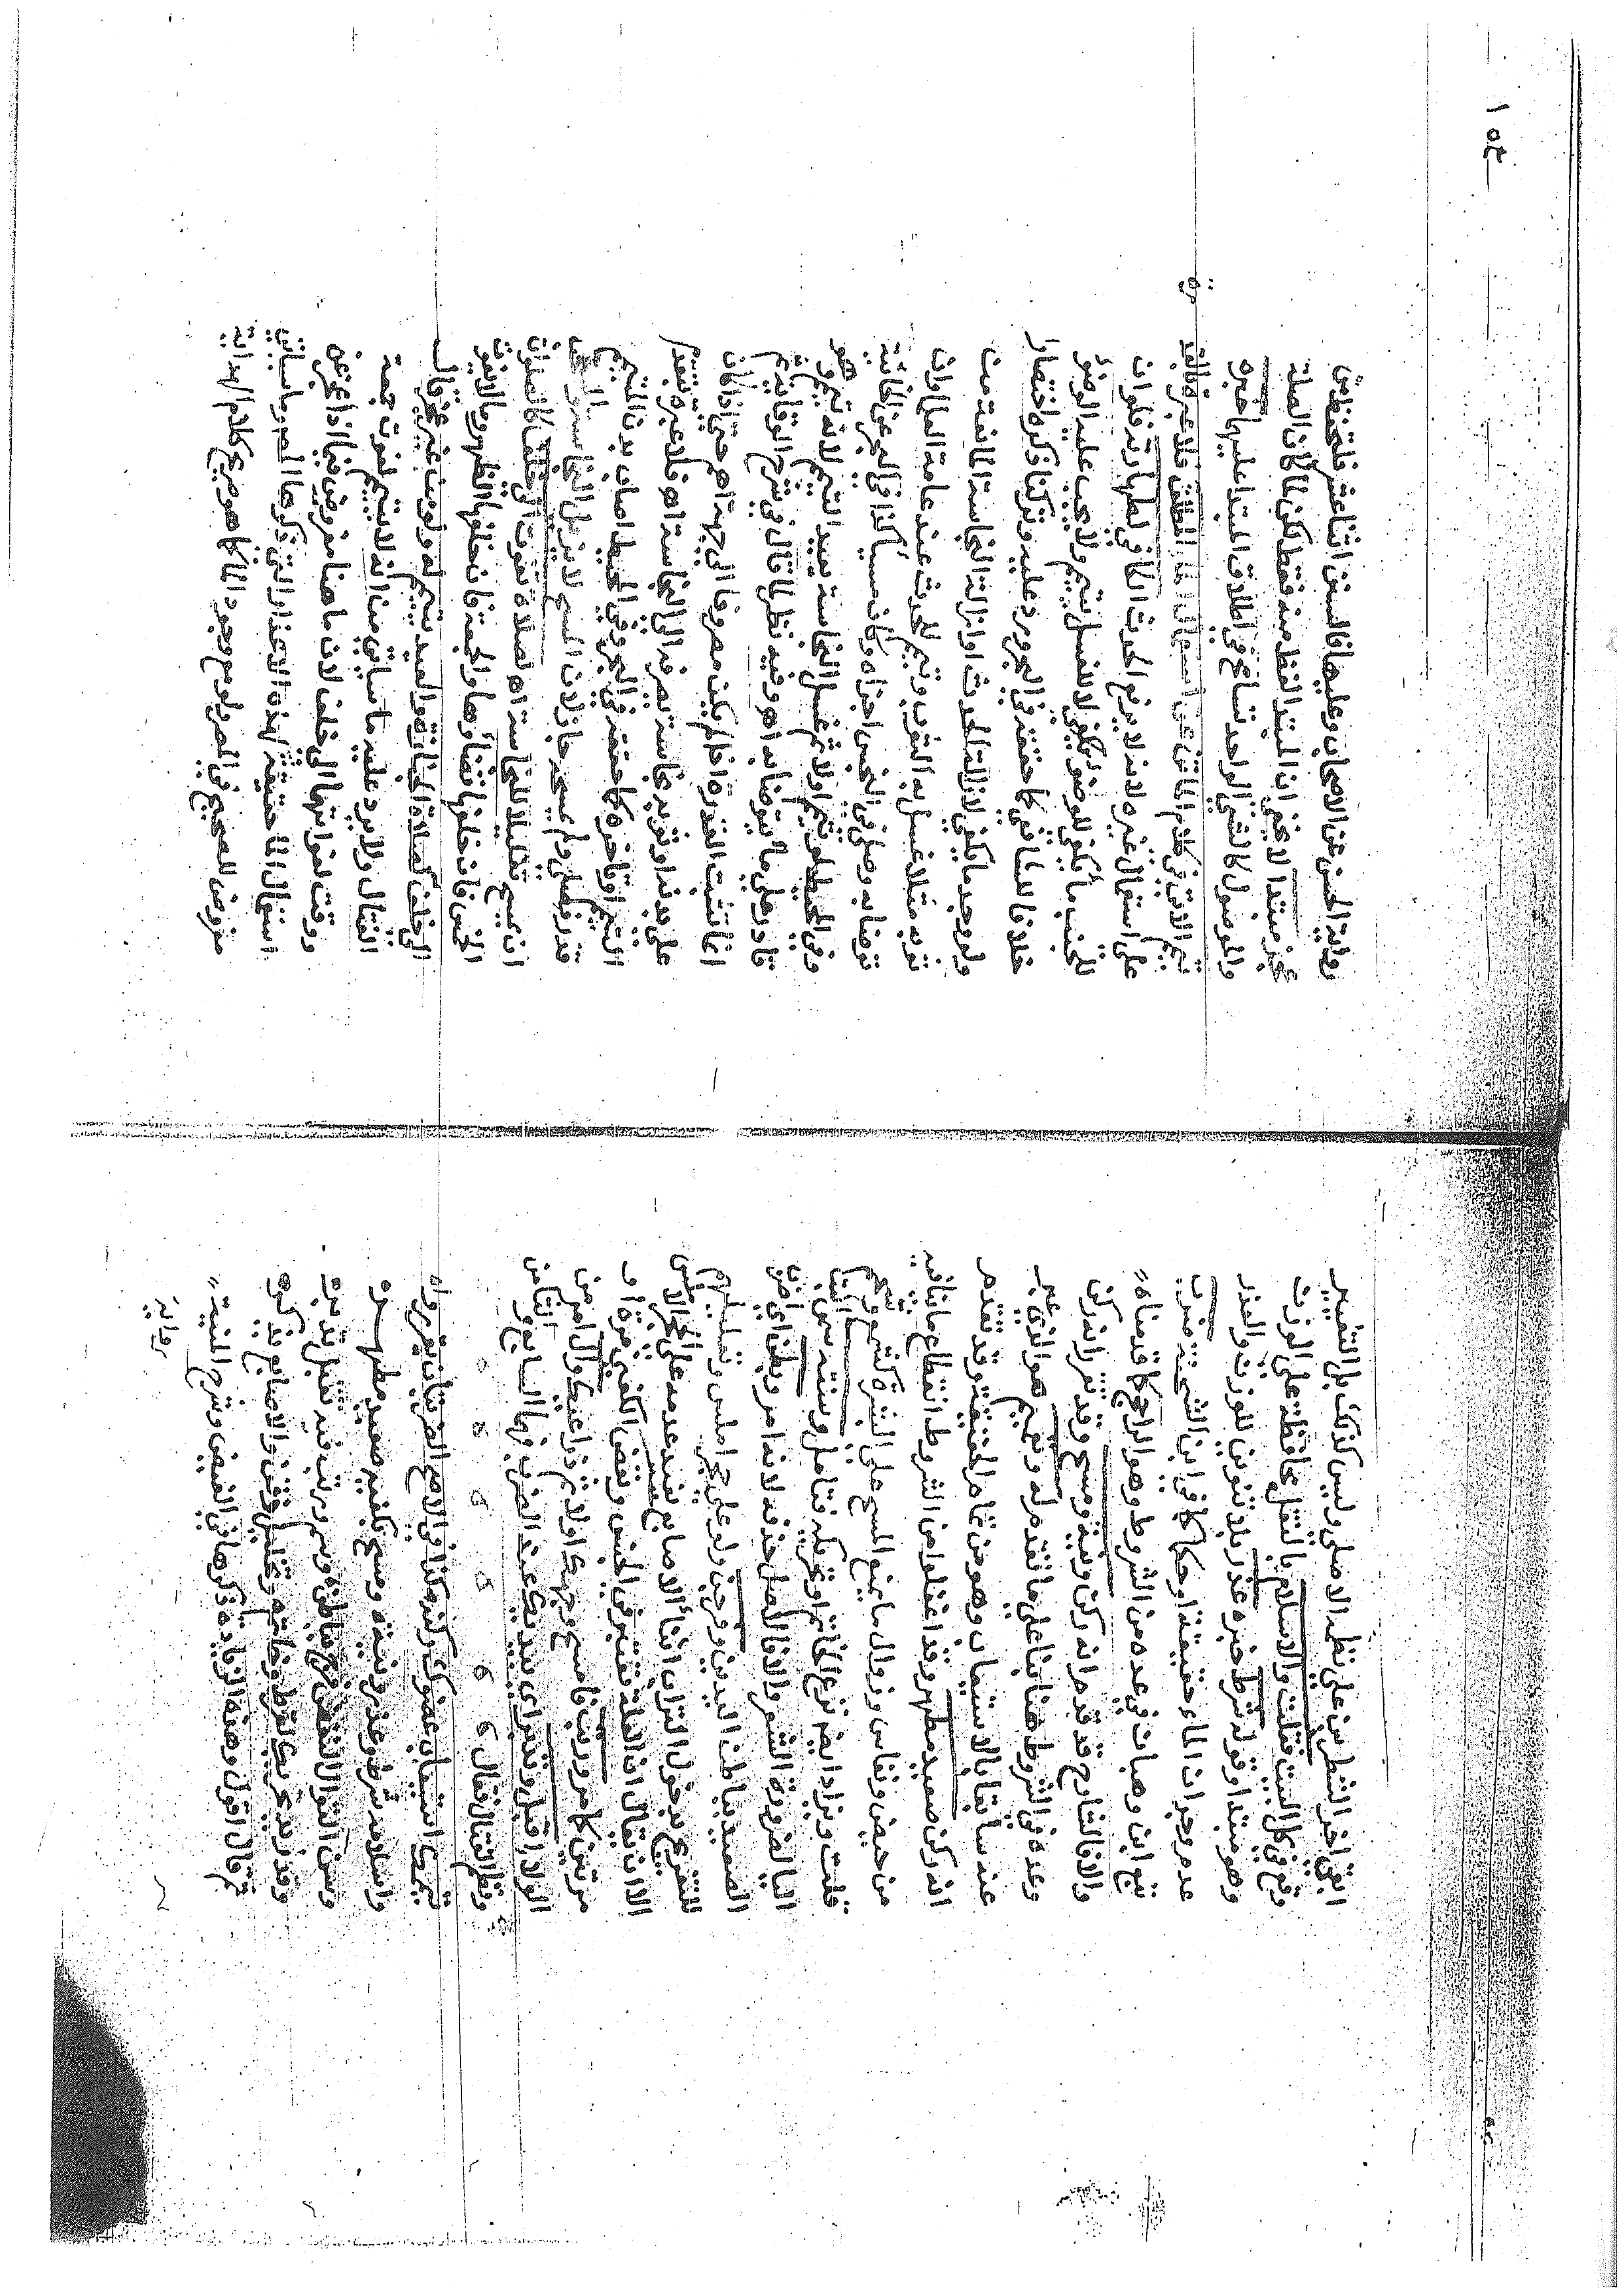 ابقى اخر الشطرين على نظمه الاصلي وليس كذلك بل التغيير
وقع في كل البيت فقلت والاسلام بالنقل محافظة على الوزن
وهو مبتدا وقوله شرط خبره عذر بلا تنوين للوزن والعذر
عدم وجدان الماء حقيقة او حكما كما في ابن الشحنة ضرب
تبع ابن وهبان في عده من الشروط وهو الراجح كما قدمناه
والا فالشارح قد قدم انه ركن ونية ومسح وقد تقرر انه ركن
وعده في الشروط هنا بنا على ما تقدم له وتعميم هو الذي عبر
عنه سابقا بالاستيعاب وهو من تمام الحقيقة وقد تقدم
انه ركن صعيد مطهر وقد اغفلوا من الشروط انقطاع ما ينافيه
من حيض ونفاس وزوال ما يمنع المسح على البشرة كشمع وشحم
قلت ويزاد ايضا نزع الخاتم او تحريكه فتامل وسننه سمي اثبتنا
اليا لضرورة الشعر والا فالاصل حذفه لانه امر وبطن اي ضرب
الصعيد بباطن اليدين وفرجن ولو على حجر املس وتعليلهم
للتفريج بدخول التراب اثناء الاصابع يفيد عدمه على الحجر الاملس
الا ان يقال ان العلة تعتبر في الجنس ونفض الكفين مرة او
مرتين كما مر ورتب فامسح وجهك اولا ثم ذراعيك وال امر من
الولا اقبل وتدبر اي بيديك عند الضرب بهما السابع و الثامن
ونظم القتال فقال
استيعاب عضوك ركنه كذا في الاصح الضربتان
واسلامه شرط وعذر ونية ومسح بكفيهم صعيد مطهره
وسن التوالي النفض فرج باطن وسم ورتب فيه تقبل تدبره
وقد زيد تحريك لقرط وخاتم وتخليل ذقن والاصابع يذكره
ثم قال اقول وهذه الزيادة ذكرها في الفيض وشرح المنية
رواية
رواية الحسن عن الاصحاب وعليها فالسنن اثنا عشر فلتحفظ من
عجز مبتدا لا يخفى ان المبتدا لفظ من فقط لكن لما كان الصلة
والموصول كالشي الواحد تسامح في اطلاق المبتدا عليها خبره
تيمم الاتي في كلام الماتن عن استعمال الماء المطلق فلا عبرة بالقدرة
على استعمال غيره لانه لا يرفع الحدث الكافي لطهارته فلو ان
للجنب ماء يكفي للوضوء لا للغسل يتيمم ولا يجب عليه الوضوء
خلافا للشافعي كما حققه في البحر ورد عليه وتركنا ذكره اختصارا
ولو وجد ما يكفي لازالة الحدث او ازالة النجاسة المانعة من
ثوبه مثلا غسل به الثوب وتيمم للحدث عند عامة العلما وان
توضا به وصلى في النجس اجزاه وكان مسيأ كذا في البحر عن الخانية
وفي المحيط لو تيمم اولا ثم غسل النجاسة يعيد التيمم لانه تيمم وهو
قادر على ما يتوضا به اه وفيه نظر لما قال في شرح الوقاية ثم
انما تثبت القدرة اذا لم يكن مصروفا الى جهة اهم حتى اذا كان
على بدنه او ثوبه نجاسة يصرفه الى النجاسة اه فلا عبرة بتقدم
التيمم او تاخره كما حققه في البحر وفي المحيط اصاب بدن التيمم
قذر فصلى ولم يمسحه جاز لان المسح لا يزيل النجاسة
ان يمسح تقليلا للنجاسة اه لصلاة تفوت الى خلف كالصلوات
الخمس فان خلفها قضاؤها والجمعة فان خلفها الظهر وما لا تفوت
الى خلف كصلاة الجنازة والعيد يتيمم له ولو من غير عجز قال
القتال ولا يرد عليه ما سياتي من انه لا يتيمم لفوت جمعة
ووقت لفواتها الى خلف لان ما هنا مفروض فيما اذا عجز عن
استعمال الما حقيقة بهذه الاعذار التي ذكرها المص وما سياتي
مفروض للصحيح في المصر ولو مع وجود الماء كما هو صريح كلام الهداية